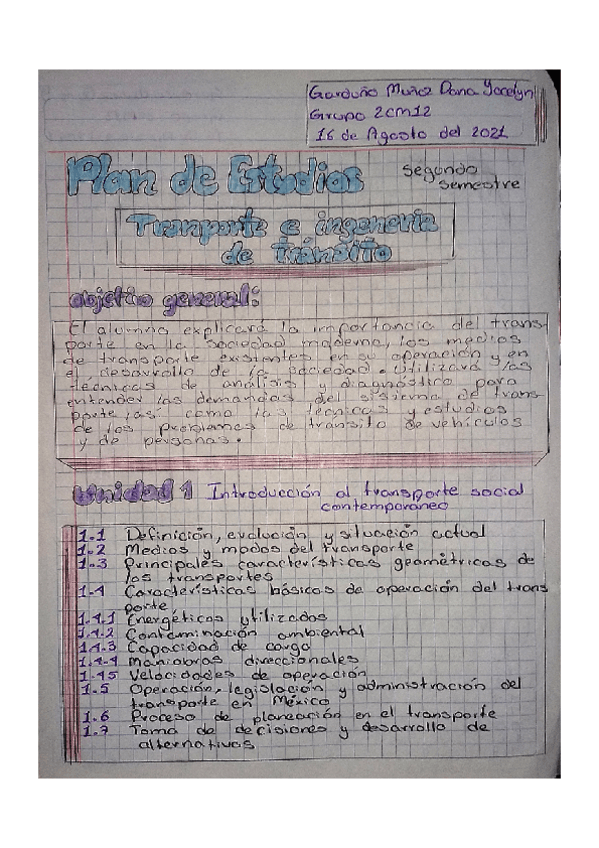 Garduño Muñoz Dana Yocelyn
Grupo 2cm12
16 de Agosto del 2021
Plan de Estudios
segundo
semestre
Tranporte e ingeneria
de tránsito
objetivo general:
El alumno explicará la importancia del trans-
porte en la sociedad moderna, los medios
de transporte existentes en su operación y en
el desarrollo de la sociedad. Utilizará las
técnicas de análisis y diagnóstico para
entender las demandas del sistema de trans-
porte, así como las técnicas y estudios
de los problemas de transito de vehículos
y de personas.
Unidad 1 Introducción al transporte social
contemporaneo
1.1 Definición, evolución y situación actual
1.2 Medios y modos del transporte
1.3 Principales características geométricas de
los transportes
1.4 Características básicas de operación del trans
porte
1.4.1 Energéticos utilizados
1.4.2 Contaminación ambiental
1.4.3 Capacidad de carga
1.4.4 Maniobras direccionales
1.45 Velocidades de operación
1.5 Operación, legislación y administración del
transporte en México
1.6 Proceso de planeación en el transporte
1.7 Toma de decisiones y desarrollo de
alternativas